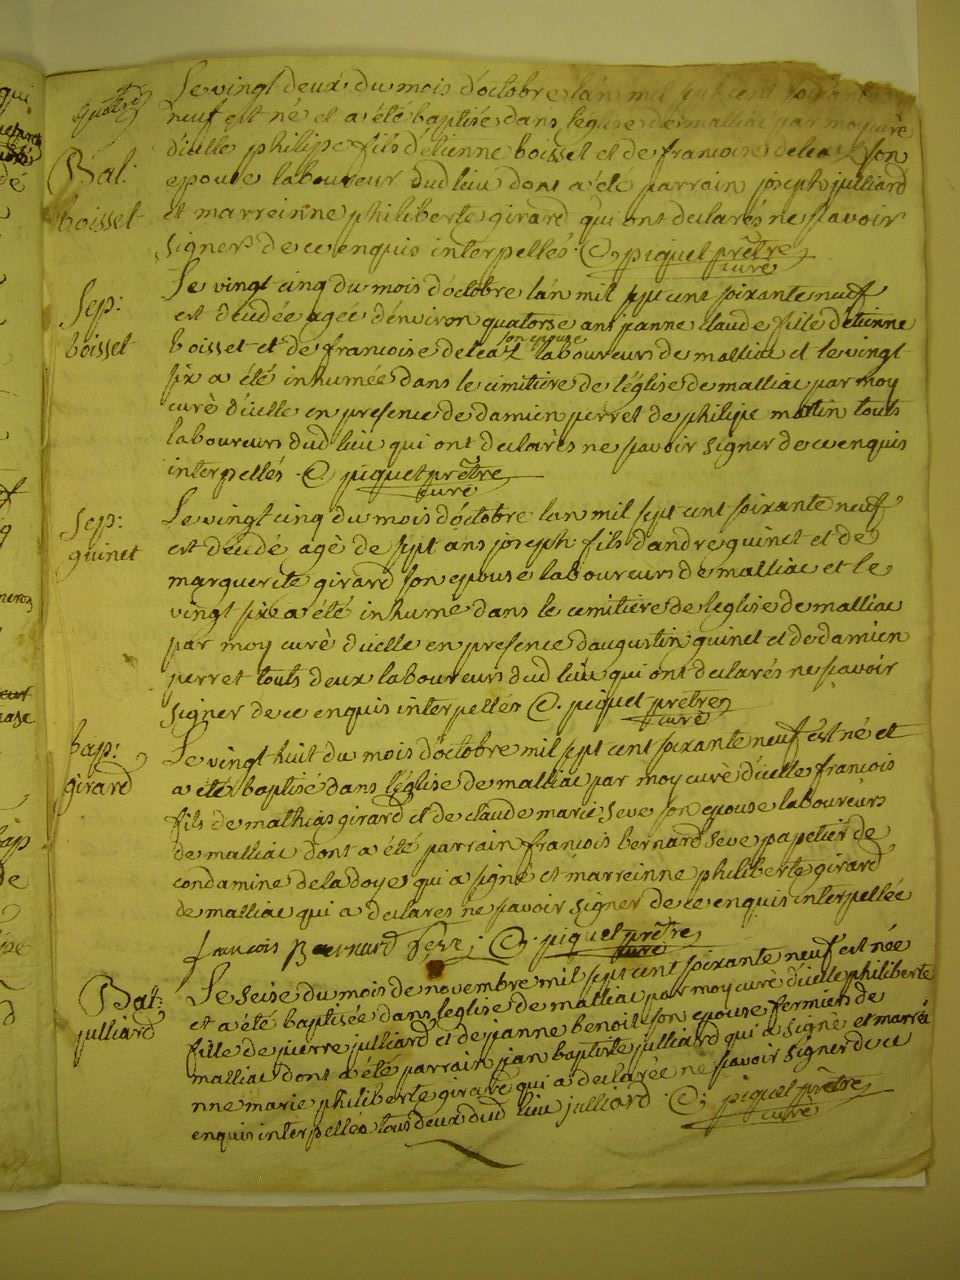 Bat:
boisset
Le vingt deux du mois d'octobre l'an mil sept cent soixante
neuf est né et a été baptisé dans l'eglise de malliac par moy curè
d'icelle philipe fils d'etienne boisset et de francoise deleaz son
epouse laboureur dud lieu dont a été parrain joseph julliard
et marreinne philiberte girard qui ont declarés ne sçavoir
signer de ce enquis interpellés. piquet prêtre
curé
Sep:
boisset
Le vingt cinq du mois d'octobre l'an mil sept cent soixante neuf
est decedée agée d'environ quatorse ans jeanne claude fille d'etienne
son epouse
boisset et de francoise deleaz laboureurs de malliac et le vingt
six a été inhumée dans le cimitiere de l'église de malliac par moy
curè d'icelle en presence de damien perret de philipe matin touts
laboureurs dud lieu qui ont declarès ne sçavoir signer de ce enquis
interpellés. piquet prêtre
curé
Sep:
guinet
Le vingt cinq du mois d'octobre l'an mil sept cent soixante neuf
est decedé agè de sept ans joseph fils d'andre guinet et de
marguerite girard son epouse laboureurs de malliac et le
vingt six a été inhumé dans le cemitiere de l'eglise de malliac
par moy curè d'icelle en presence d'augustin guinet et de damien
perret touts deux laboureurs dud lieu qui ont declarés ne sçavoir
signer de ce enquis interpellés. piquet prêtre
curé
bap:
girard
Le vingt huit du mois d'octobre mil sept cent soixante neuf est né et
a été baptisé dans l'église de malliac par moy curè d'icelle francois
fils de mathias girard et de claude marie seve son epouse laboureurs
de malliac dont a été parrain francois bernard seve papetier de
condamine de la doye qui a signé et marreinne philiberte girard
de malliac qui a declares ne sçavoir signer de ce enquis interpellée
francois Bernard seve; piquet prêtre
curé
Bat:
julliard
Le seise du mois de novembre mil sept cent soixante neuf est née
et a été baptisée dans l'eglise de malliac par moy curè d'icelle philiberte
fille de pierre julliard et de jeanne benoit son epouse fermier de
malliac dont a été parrain jean baptiste julliard qui a signè et marrei
nne marie philiberte girard qui a declarée ne sçavoir signer de ce
enquis interpellée tous deux dud lieu julliard. piquet prêtre
curé